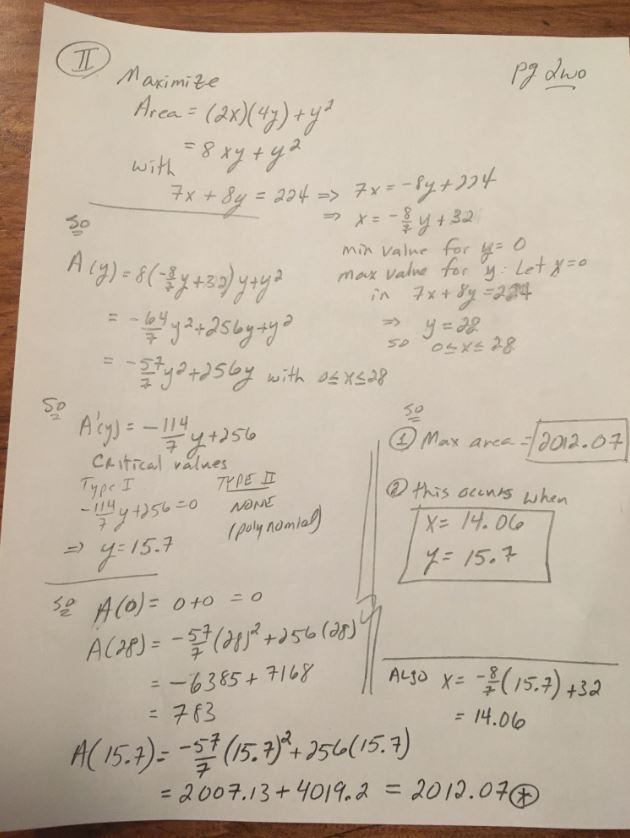 II
pg two
Maximize
Area = (2x)(4y) + y²
= 8xy + y²
with
7x + 8y = 224 ⇒ 7x = -8y + 224
⇒ x = -8/7 y + 32
min value for y = 0
max value for y: Let x = 0
in 7x + 8y = 224
⇒ y = 28
so 0 ≤ x ≤ 28
so
A(y) = 8(-8/7 y + 32)y + y²
= -64/7 y² + 256y + y²
= -57/7 y² + 256y with 0 ≤ x ≤ 28
so
A'(y) = -114/7 y + 256
Critical values
Type I
-114/7 y + 256 = 0
⇒ y = 15.7
TYPE II
NONE
(polynomial)
so A(0) = 0 + 0 = 0
A(28) = -57/7 (28)² + 256(28)
= -6385 + 7168
= 783
A(15.7) = -57/7 (15.7)² + 256(15.7)
= 2007.13 + 4019.2 = 2012.07 *
so
① Max area = 2012.07
② this occurs when
x = 14.06
y = 15.7
ALSO x = -8/7 (15.7) + 32
= 14.06